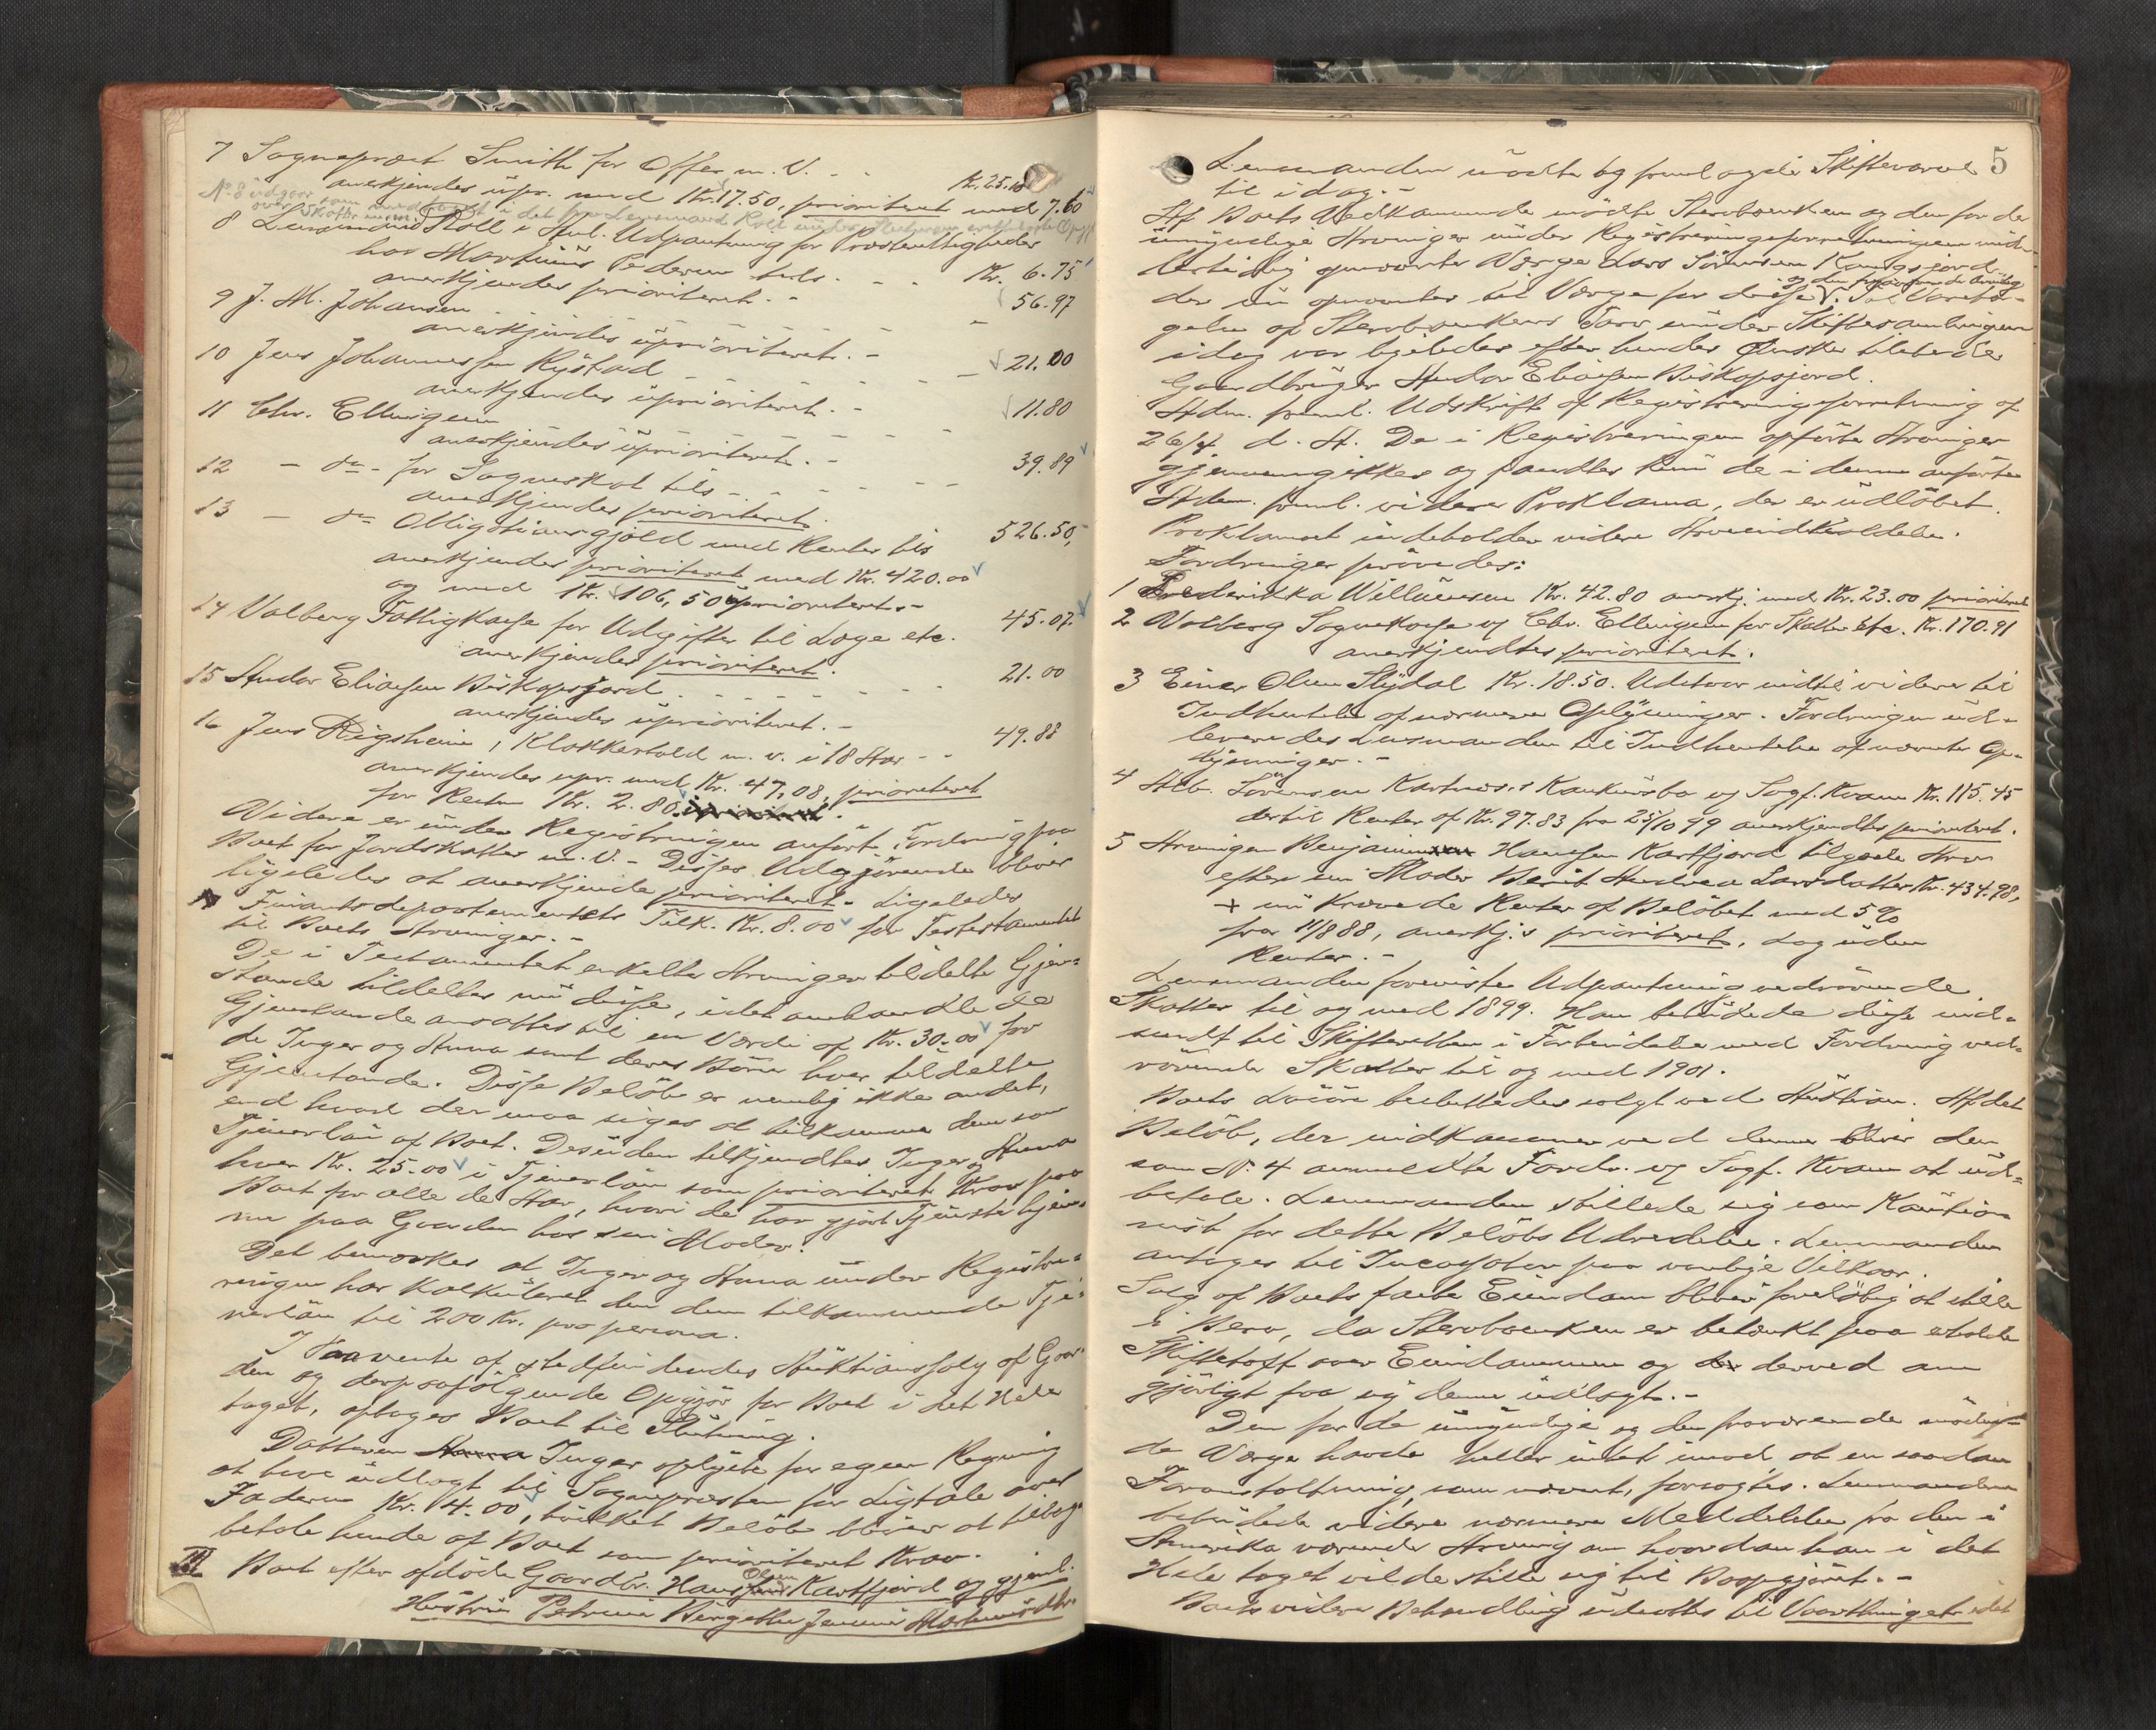 7 Sognepræst Smith for Offer m. V. - - Kr. 25.10
anerkjendes upr. med Kr. 17.50, prioriteret med 7.60
8 Lensmand Koll i Anl. Udpantning for Præsterettigheder
hos Martinus Pedersen tils. - - - Kr. 6.75
anerkjendes prioriteret. -
9 J. M. Johansen - - - - - 56.97
anerkjendes uprioriteret. -
10 Jens Johannessen Rystad - - - - - 21.00
anerkjendes uprioriteret. -
11 Chr. Ellingsen - - - - - 11.80
anerkjendes uprioriteret. -
12 - do - for Sogneskat tils - - - - - 39.89
anerkjendes prioriteret.
13 - do Obligationsgjæld med Renter tils 526.50,
anerkjendes prioriteret med Kr. 420.00
og med Kr. 106,50 uprioriteret. -
14 Valberg Fattigkasse for Udgifter til Læge etc. 45.07.
anerkjendes prioriteret.
15 Andor Eliassen Biskopsjord - - - - - 21.00
anerkjendes uprioriteret. -
16 Jens Rigsheim, Klokkertold m. v. i 18 Aar - - 49.88
anerkjendes upr. med Kr. 47,08, prioriteret
for Resten Kr. 2.80
Videre er under Registreringen anført Fordring paa
Boet for Jordskatter m. V. - Disses Udgjørende bliver
ligeledes at anerkjende prioriteret. Ligeledes
Finantsdepartementets Tilk. Kr. 8.00 for Testamentet
til Boets Arvinger. -
De i Testamentet enkelte Arvinger tildelte Gjen=
stande tildeltes nu disse, idet omhandlede
Gjenstande ansattes til en Værdi af Kr. 30.00 for
de Inger og Anna samt deres Børn hver tildelte
Gjenstande. Disse Beløb er nemlig ikke andet,
end hvad der maa siges at tilkomme dem som
Tjenerløn af Boet. Desuden tilkjendtes Inger og Anna
hver Kr. 25.00 i Tjenerløn som prioriteret Krav paa
Boet for alle de Aar, hvori de har gjort Tjeneste hjem=
me paa Gaarden hos sin Moder.
Det bemærkes at Inger og Anna under Registre=
ringen har kalkuleret den dem tilkommende Tje=
nerløn til 200 Kr. pro persona.
I Paavente af stedfindendes Auktionssalg af Gaar=
den og derpaafølgende Opgjør for Boet i det Hele
taget, optages Boet til Slutning.
Datteren Inger oplyste for egen Regning
at have udlagt til Sognepræsten for Ligtale over
Faderen Kr. 4.00, hvilket Beløb bliver at tilbage
betale hende af Boet som prioriteret Krav.
III Boet efter afdøde Gaardbr. Hans Olsen Kartfjord og gjenl.
Hustru Petrine Birgethe Jennine Martinusdtr.
5
Lensmanden mødte og fremlagde Skiftevarsel
til idag. -
Af Boets Vedkommende mødte Sterbøenken og den for de
umyndige Arvinger under Registreringsforretningen midler=
tidig opnævnte Værge Lars Sørensen Kongsjord
der nu opnævntes til Værge for disse og den fraværende Arving. Til Vareta=
gelse af Sterbøenkens Tarv under Skiftesamlingen
idag var ligeledes efter hendes Ønske tilstede
Gaardbruger Andor Eliassen Biskopsjord.
Adm. freml. Udskrift af Registreringsforretning af
26/4 d. A. De i Registreringen opførte Arvinger
gjennemgikkes og fandtes kun de i denne anførte
Adm. freml. videre Proklama, der er udløbet.
Proklamaet indeholder videre Arveindkaldelse.
Fordringer prøvedes:
1 Frederikka Willumsen Kr. 42.80 anerkj. med Kr. 23.00 prioriteret
2 Valberg Sognekasse v/ Chr. Ellingsen for Skatter etc. Kr. 170.91
anerkjendtes prioriteret.
3 Einar Olsen Slydal Kr. 18.50. Udstaar indtil videre til
Indhentelse af nærmere Oplysninger. Fordringen ud=
leveredes Lensmanden til Indhentelse af nævnte Op=
lysninger. -
4 Alb. Sørensen Kartnæs's Konkursbo v/ Sagf. Kvam Kr. 115.45
dertil Renter af Kr. 97.83 fra 25/10 99 anerkjendtes prioriteret.
5 Arvingen Benjamin Hanssen Kartfjord tilgode Arv
efter sin Moder Berit Andrea Larsdatter Kr. 434.98,
+ nu krævede Renter af Beløbet med 5 %
fra 11/8 88, anerkj.s prioriteret, dog uden
Renter. -
Lensmanden foreviste Udpantning vedrørende
Skatter til og med 1899. Han bebudede disse ind=
sendt til Skifteretten i Forbindelse med Fordring ved=
rørende Skatter til og med 1901.
Boets Løsøre besluttedes solgt ved Auktion. Af det
Beløb, der indkommer ved denne bliver den
som No. 4 anmeldte Fordr. v/ Sagf. Kvam at ud=
betale. Lensmanden stillede sig som Kaution
nist for dette Beløbs Udredelse. Lensmanden
antages til Incassator paa vanlige Vilkaar.
Salg af Boets faste Eiendom bliver foreløbig at stille
i Bero, da Sterbøenken er betænkt paa at holde
Skiftetaxt over Eiendommen og derved om
gjørligt faa sig denne udlagt. -
Den for de umyndige og den fraværende mødende
Værge havde heller intet imod at en saadan
Foranstaltning, som nævnt, forsøgtes. Lensmanden
bebudede videre nærmere Meddelelse fra den i
Amerika værende Arving om hvordan han i det
Hele taget vilde stille sig til Boopgjøret. -
Boets videre Behandling udsattes til Vaarthinget idet